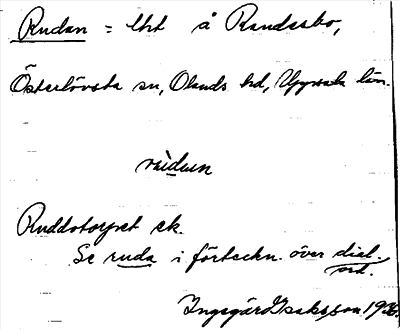 Rudan = lht å Randesbo,
Österlövsta sn, Olands hd, Uppsala län.
Ruddotorpet ek.
Se ruda i förteckn. över dial.
ord.
Ingegärd Isaksson 1936.